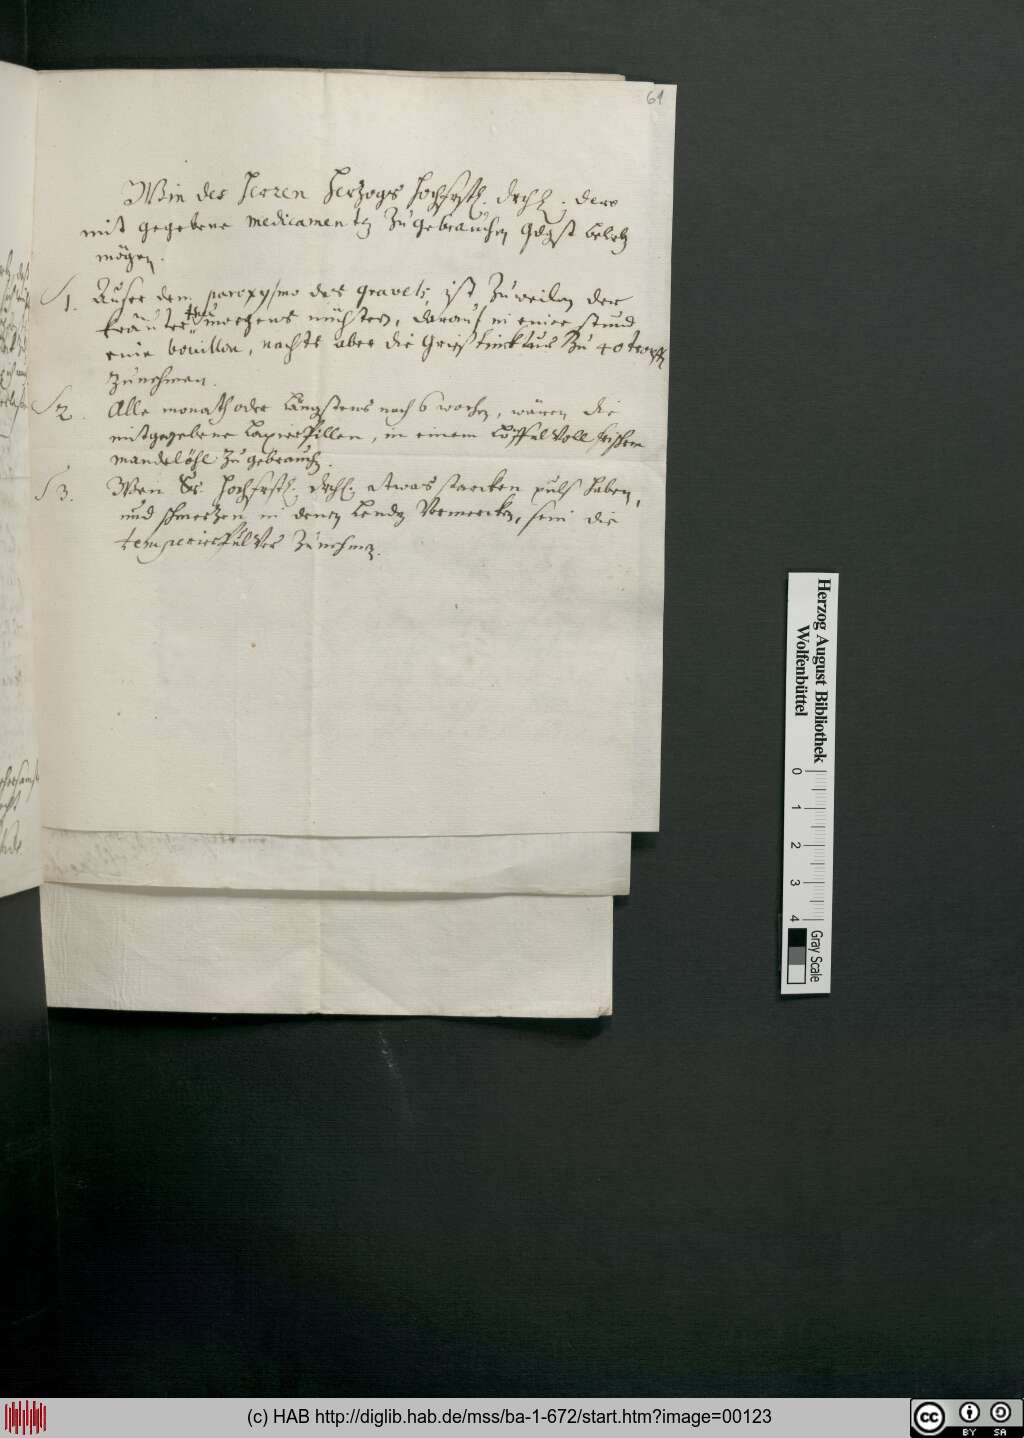 61
Wie des Herren Herzogs Hochfrstl. Drchl. dero
mit gegebene medicamenta zu gebrauchen gdgst belieben
mögen.
1. Außer dem paroxysmo des gravels, ist zuweilen der
kräuter thee morgens nüchtern, darauf in einer stund
eine bouillon, nachts aber die Grießtinctur zu 40 tropfen
zunehmen.
2. Alle monath oder längstens nach 6 wochen, wären die
mitgegebene Laxierpillen, in einem Löffel voll frischem
mandelöhl zu gebrauchen.
3. Wen Sr. Hochfrstl. Drchl. etwas starcken puls haben,
und schmerzen in denen Lenden vermercken, sein die
temperierpulver zunehmen.
Herzog August Bibliothek
Wolfenbüttel
0 1 2 3 4
Gray Scale
(c) HAB http://diglib.hab.de/mss/ba-1-672/start.htm?image=00123
cc BY SA